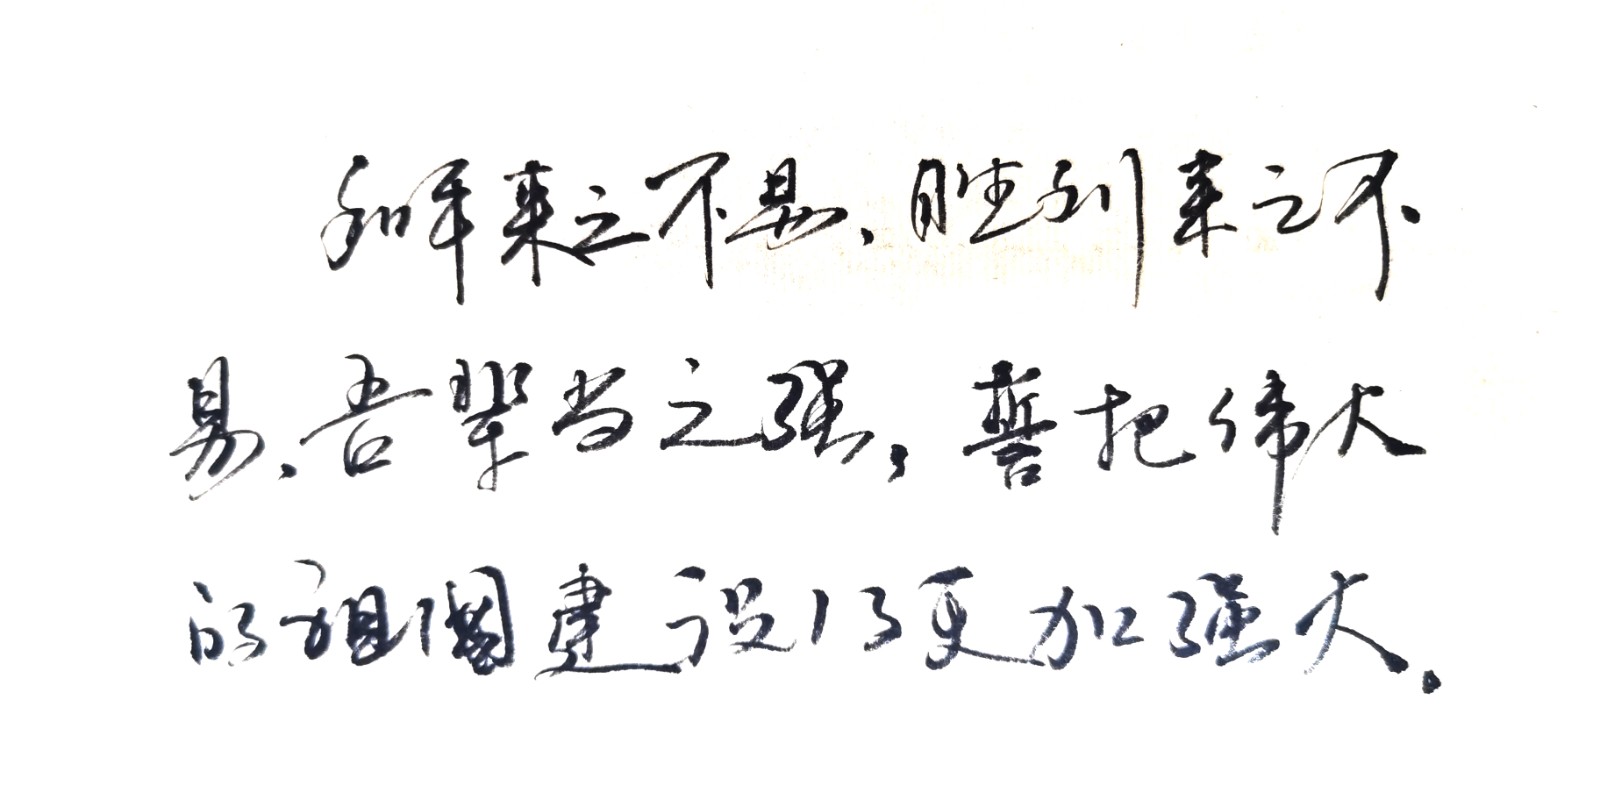 和平来之不易,胜利来之不
易,吾辈当之强,誓把伟大
的祖國建设得更加强大。